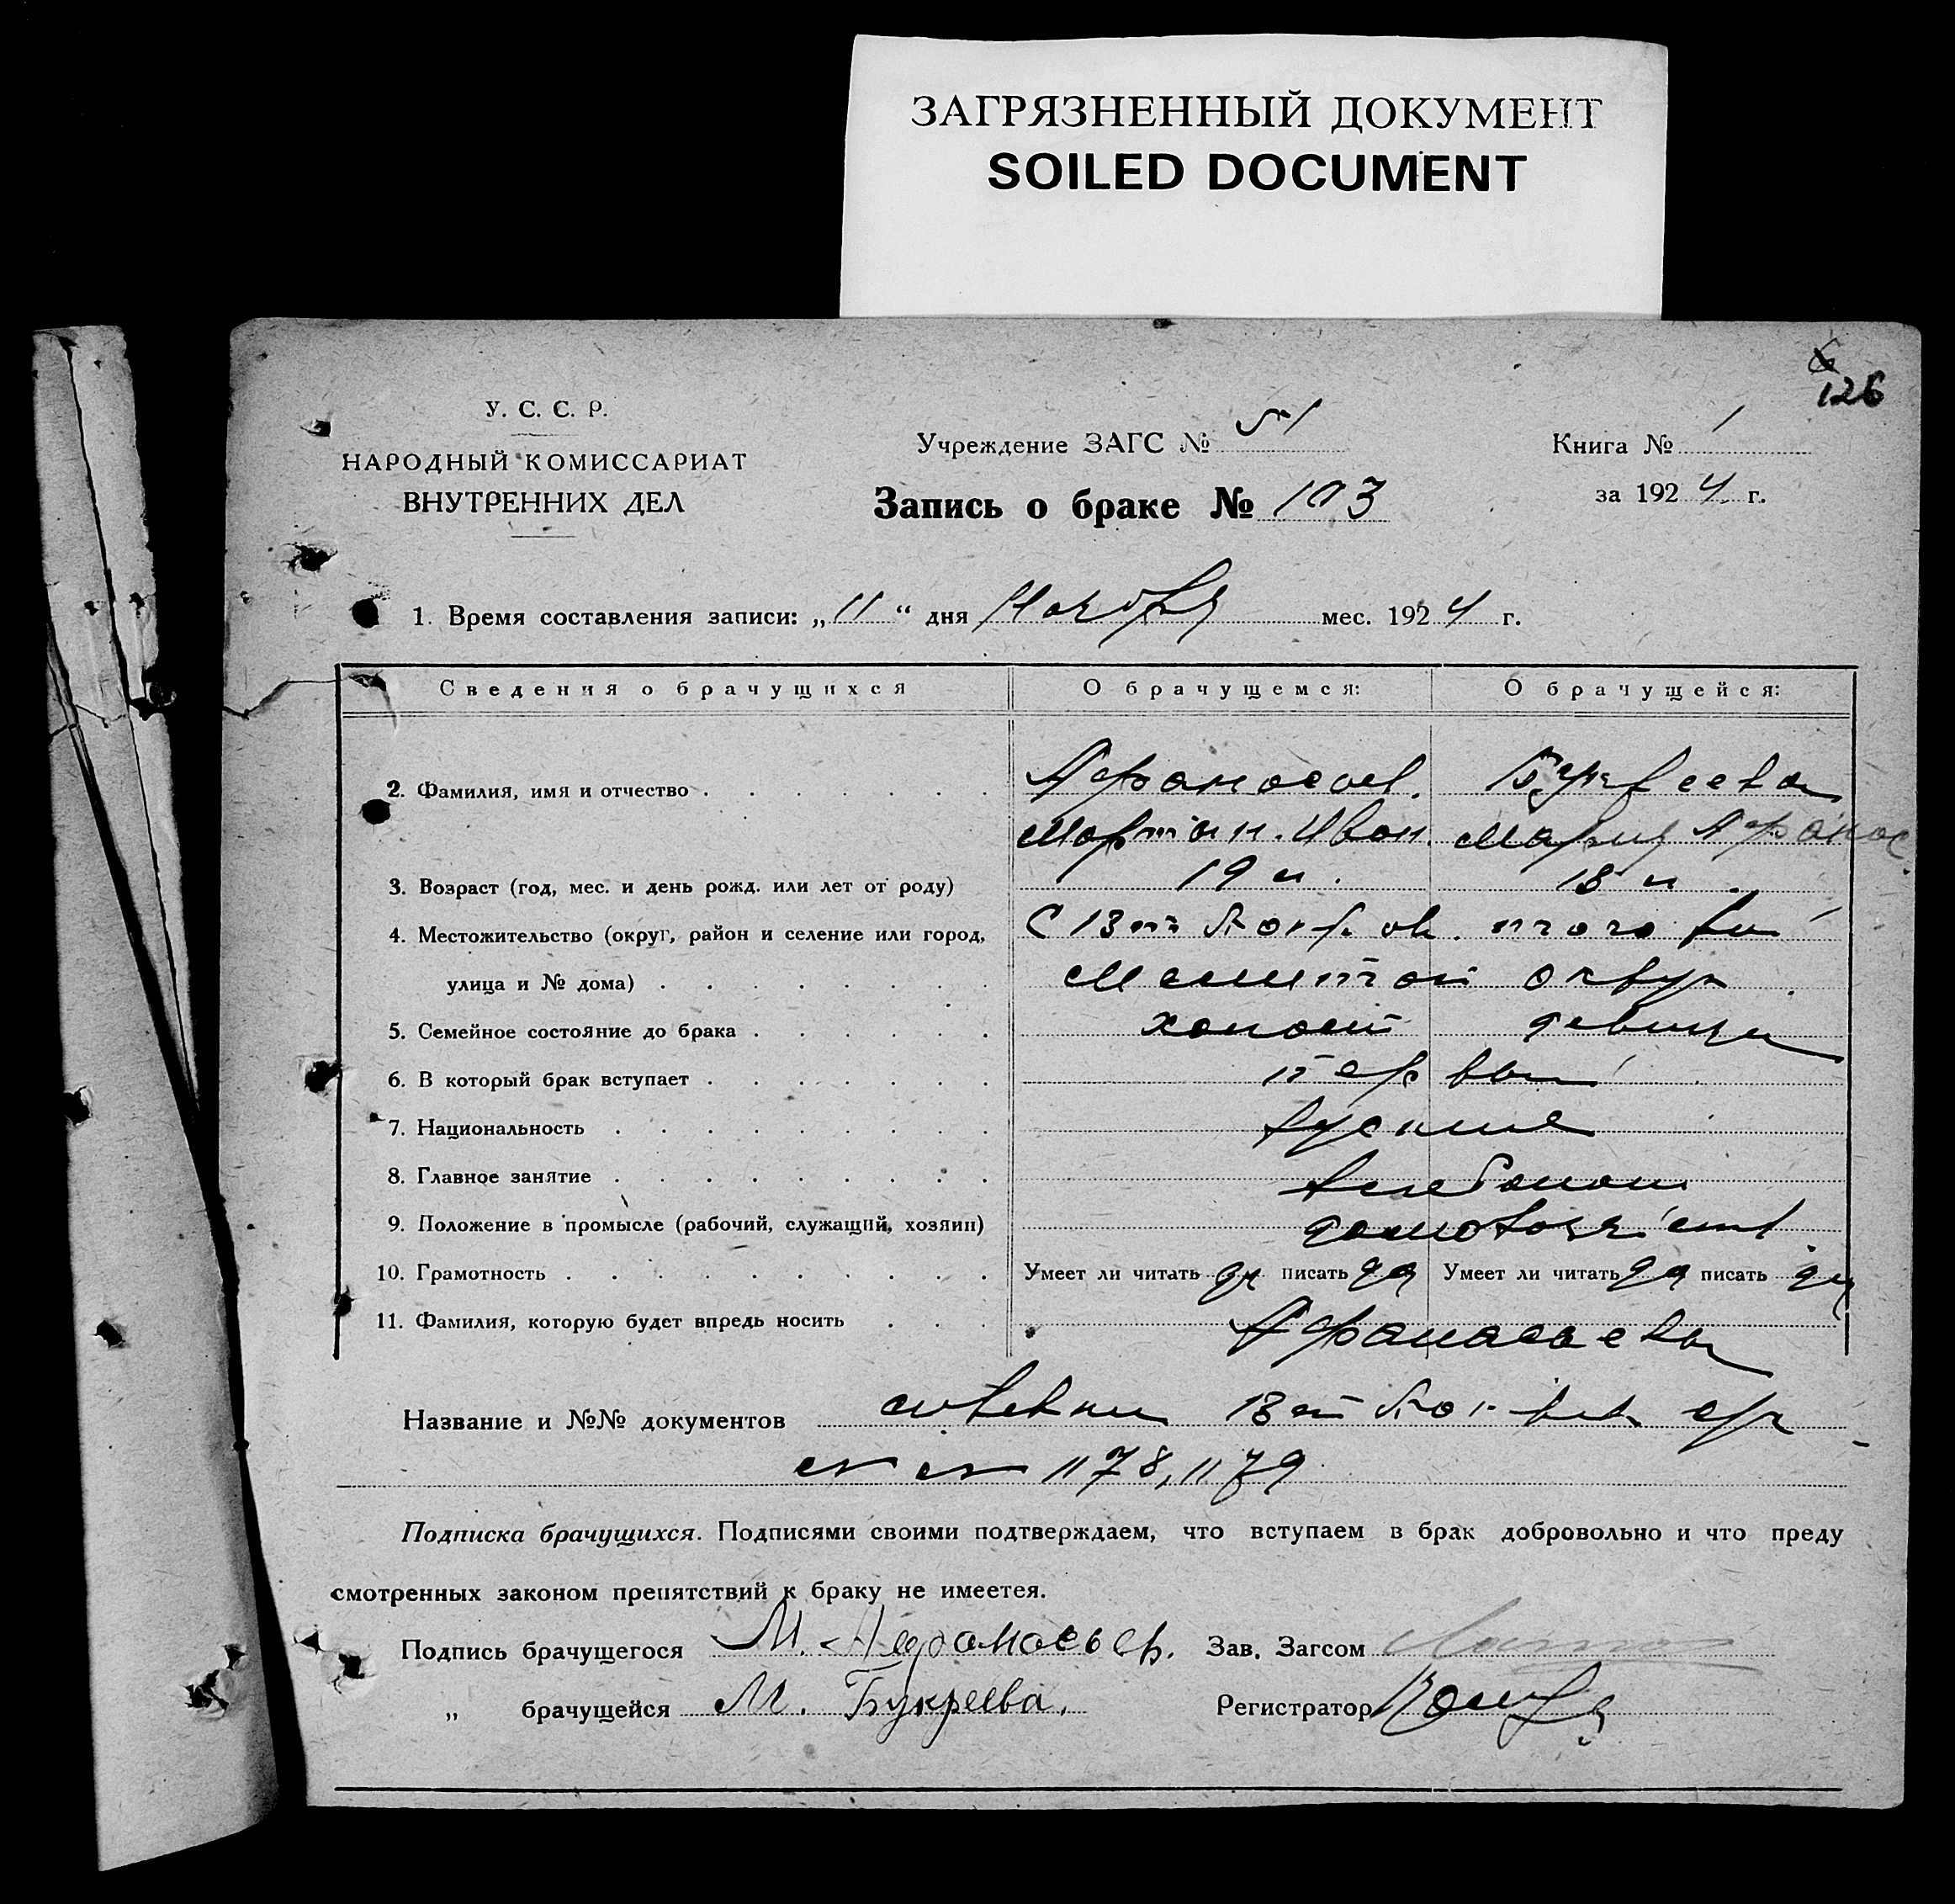 ЗАГРЯЗНЕННЫЙ ДОКУМЕНТ
SOILED DOCUMENT
126
У. С. С. Р.
НАРОДНЫЙ КОМИССАРИАТ
ВНУТРЕННИХ ДЕЛ
Учреждение ЗАГС № 51
Книга № 1
Запись о браке № 103
за 1924 г.
1. Время составления записи: „11“ дня Ноября мес. 1924 г.
Сведения о брачущихся О брачущемся: О брачущейся:
2. Фамилия, имя и отчество Афанасьев. Букреева
Мартин. Иван. Мария Афанас
3. Возраст (год, мес. и день рожд. или лет от роду) 19 л. 18 л.
4. Местожительство (округ, район и селение или город,
улица и № дома)
5. Семейное состояние до брака холост девица
6. В который брак вступает первый
7. Национальность
8. Главное занятие хлебопаш
9. Положение в промысле (рабочий, служащий, хозяин)
10. Грамотность Умеет ли читать да писать да Умеет ли читать да писать да
11. Фамилия, которую будет впредь носить Афанасьева
Название и №№ документов
1178, 1179
Подписка брачущихся. Подписями своими подтверждаем, что вступаем в брак добровольно и что преду
смотренных законом препятствий к браку не имеетея.
Подпись брачущегося М. Афанасьев. Зав. Загсом
„ брачущейся М. Букреева. Регистратор